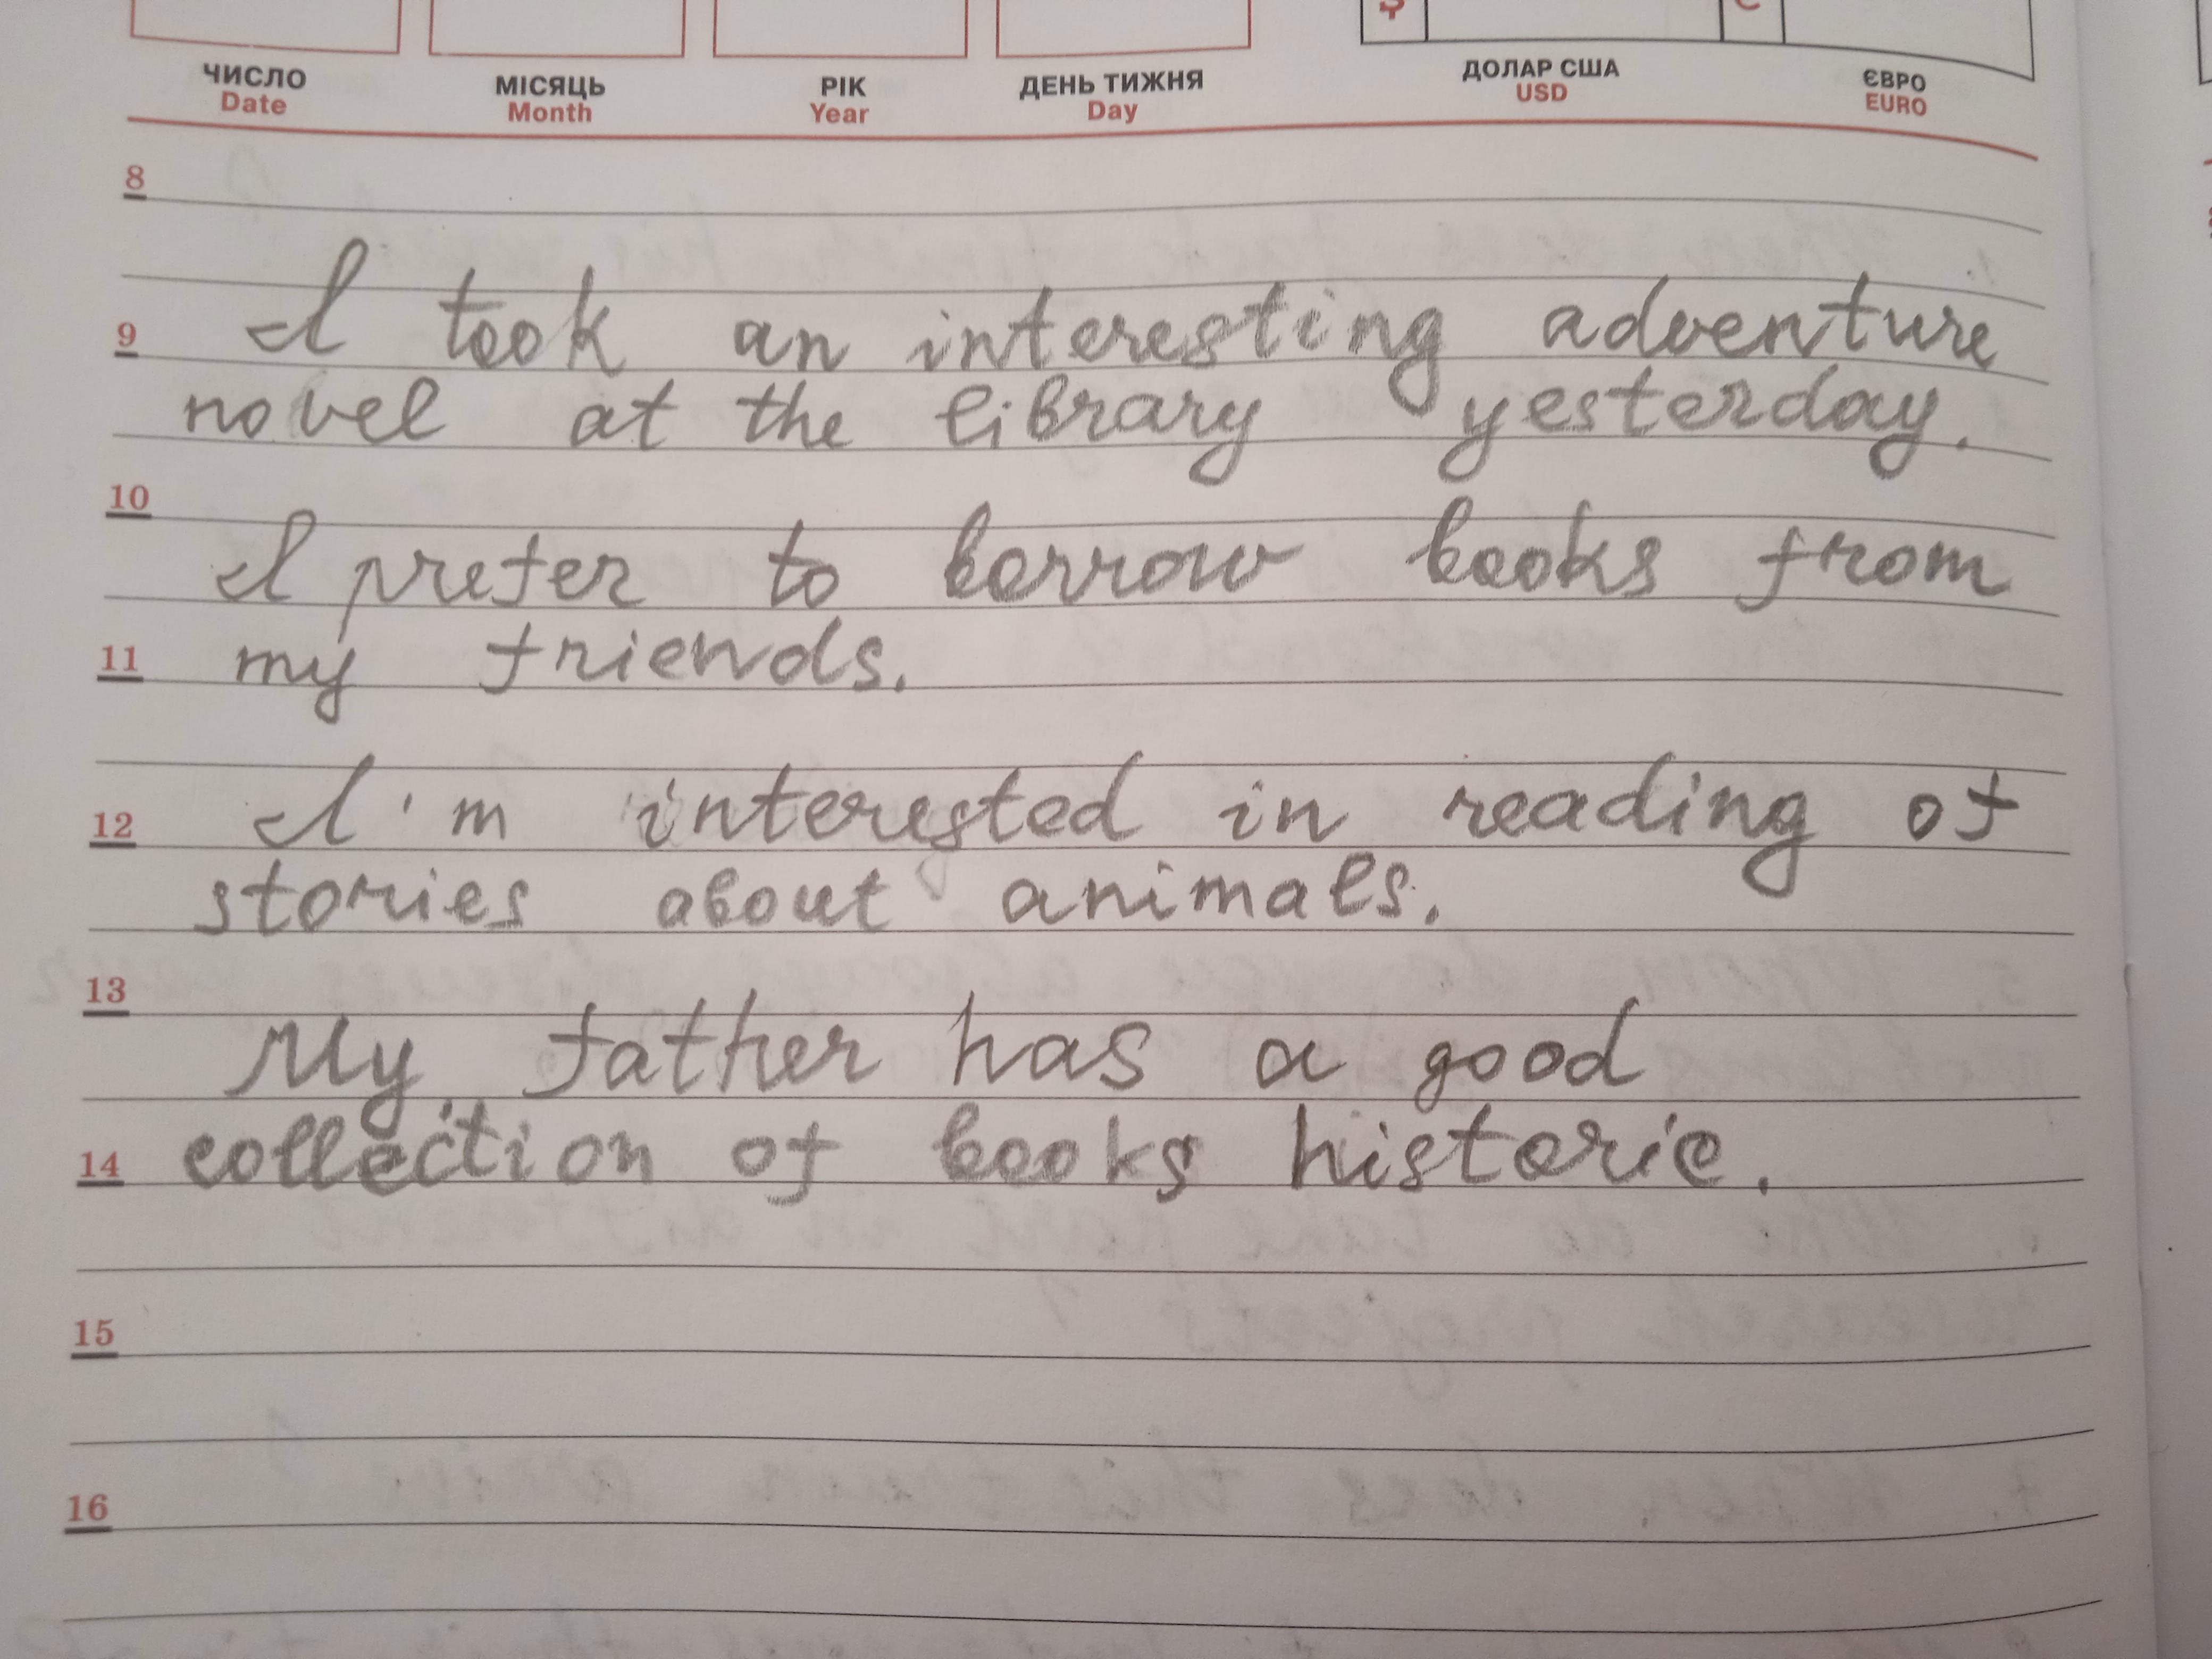 ЧИСЛО МІСЯЦЬ РІК ДЕНЬ ТИЖНЯ ДОЛАР США ЄВРО
Date Month Year Day USD EURO
8
9 I took an interesting adventure
novel at the library yesterday.
10
I prefer to borrow books from
11 my friends.
12 I'm interested in reading of
stories about animals.
13
My father has a good
14 collection of books historic.
15
16